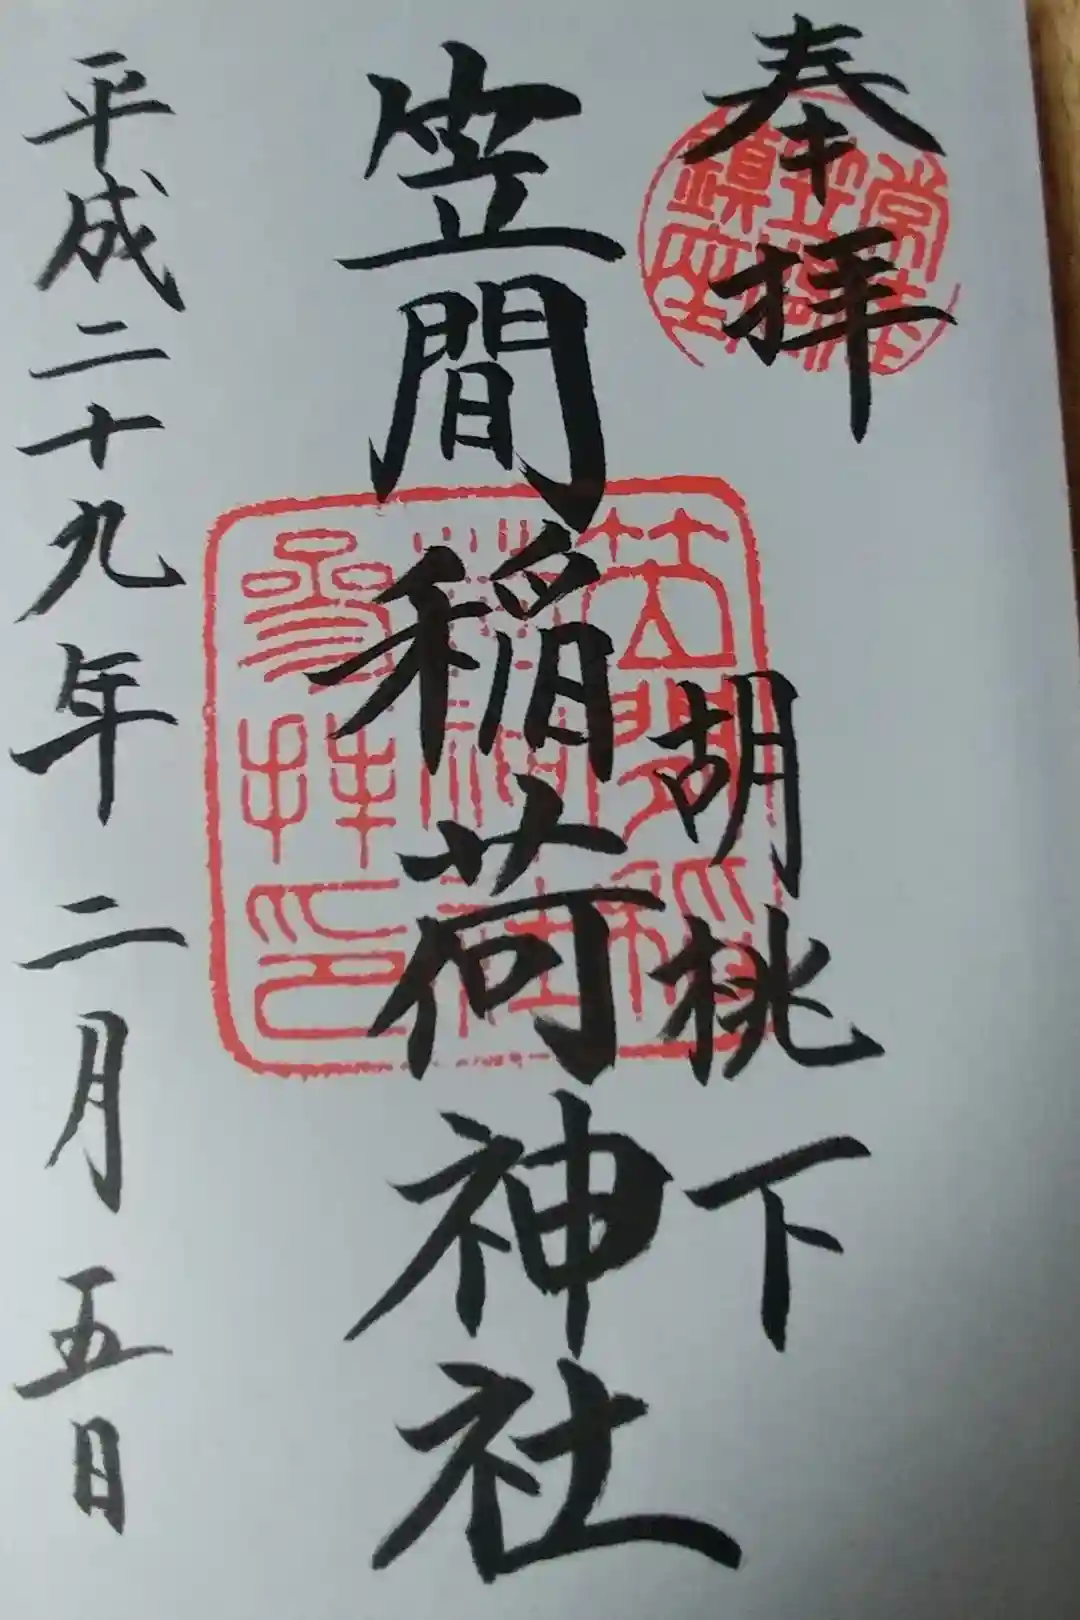 奉拝
胡桃下
笠間稲荷神社
平成二十九年二月五日
笠間稲
荷神社
参拝印